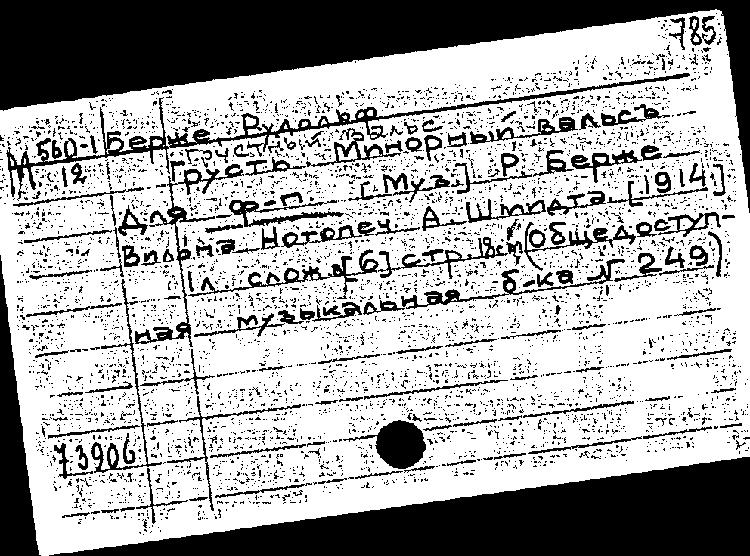 785
М 560-1 Берже, Рудольф
12 Грустный вальс
Грусть. Минорный вальсъ
Для ф-п. [Муз.] Р. Берже
Вильна Нотопеч. А. Шмидта. [1914.]
1 л. слож. в [6] стр. 18см (Общедоступ-
ная музыкальная б-ка № 249)
73906